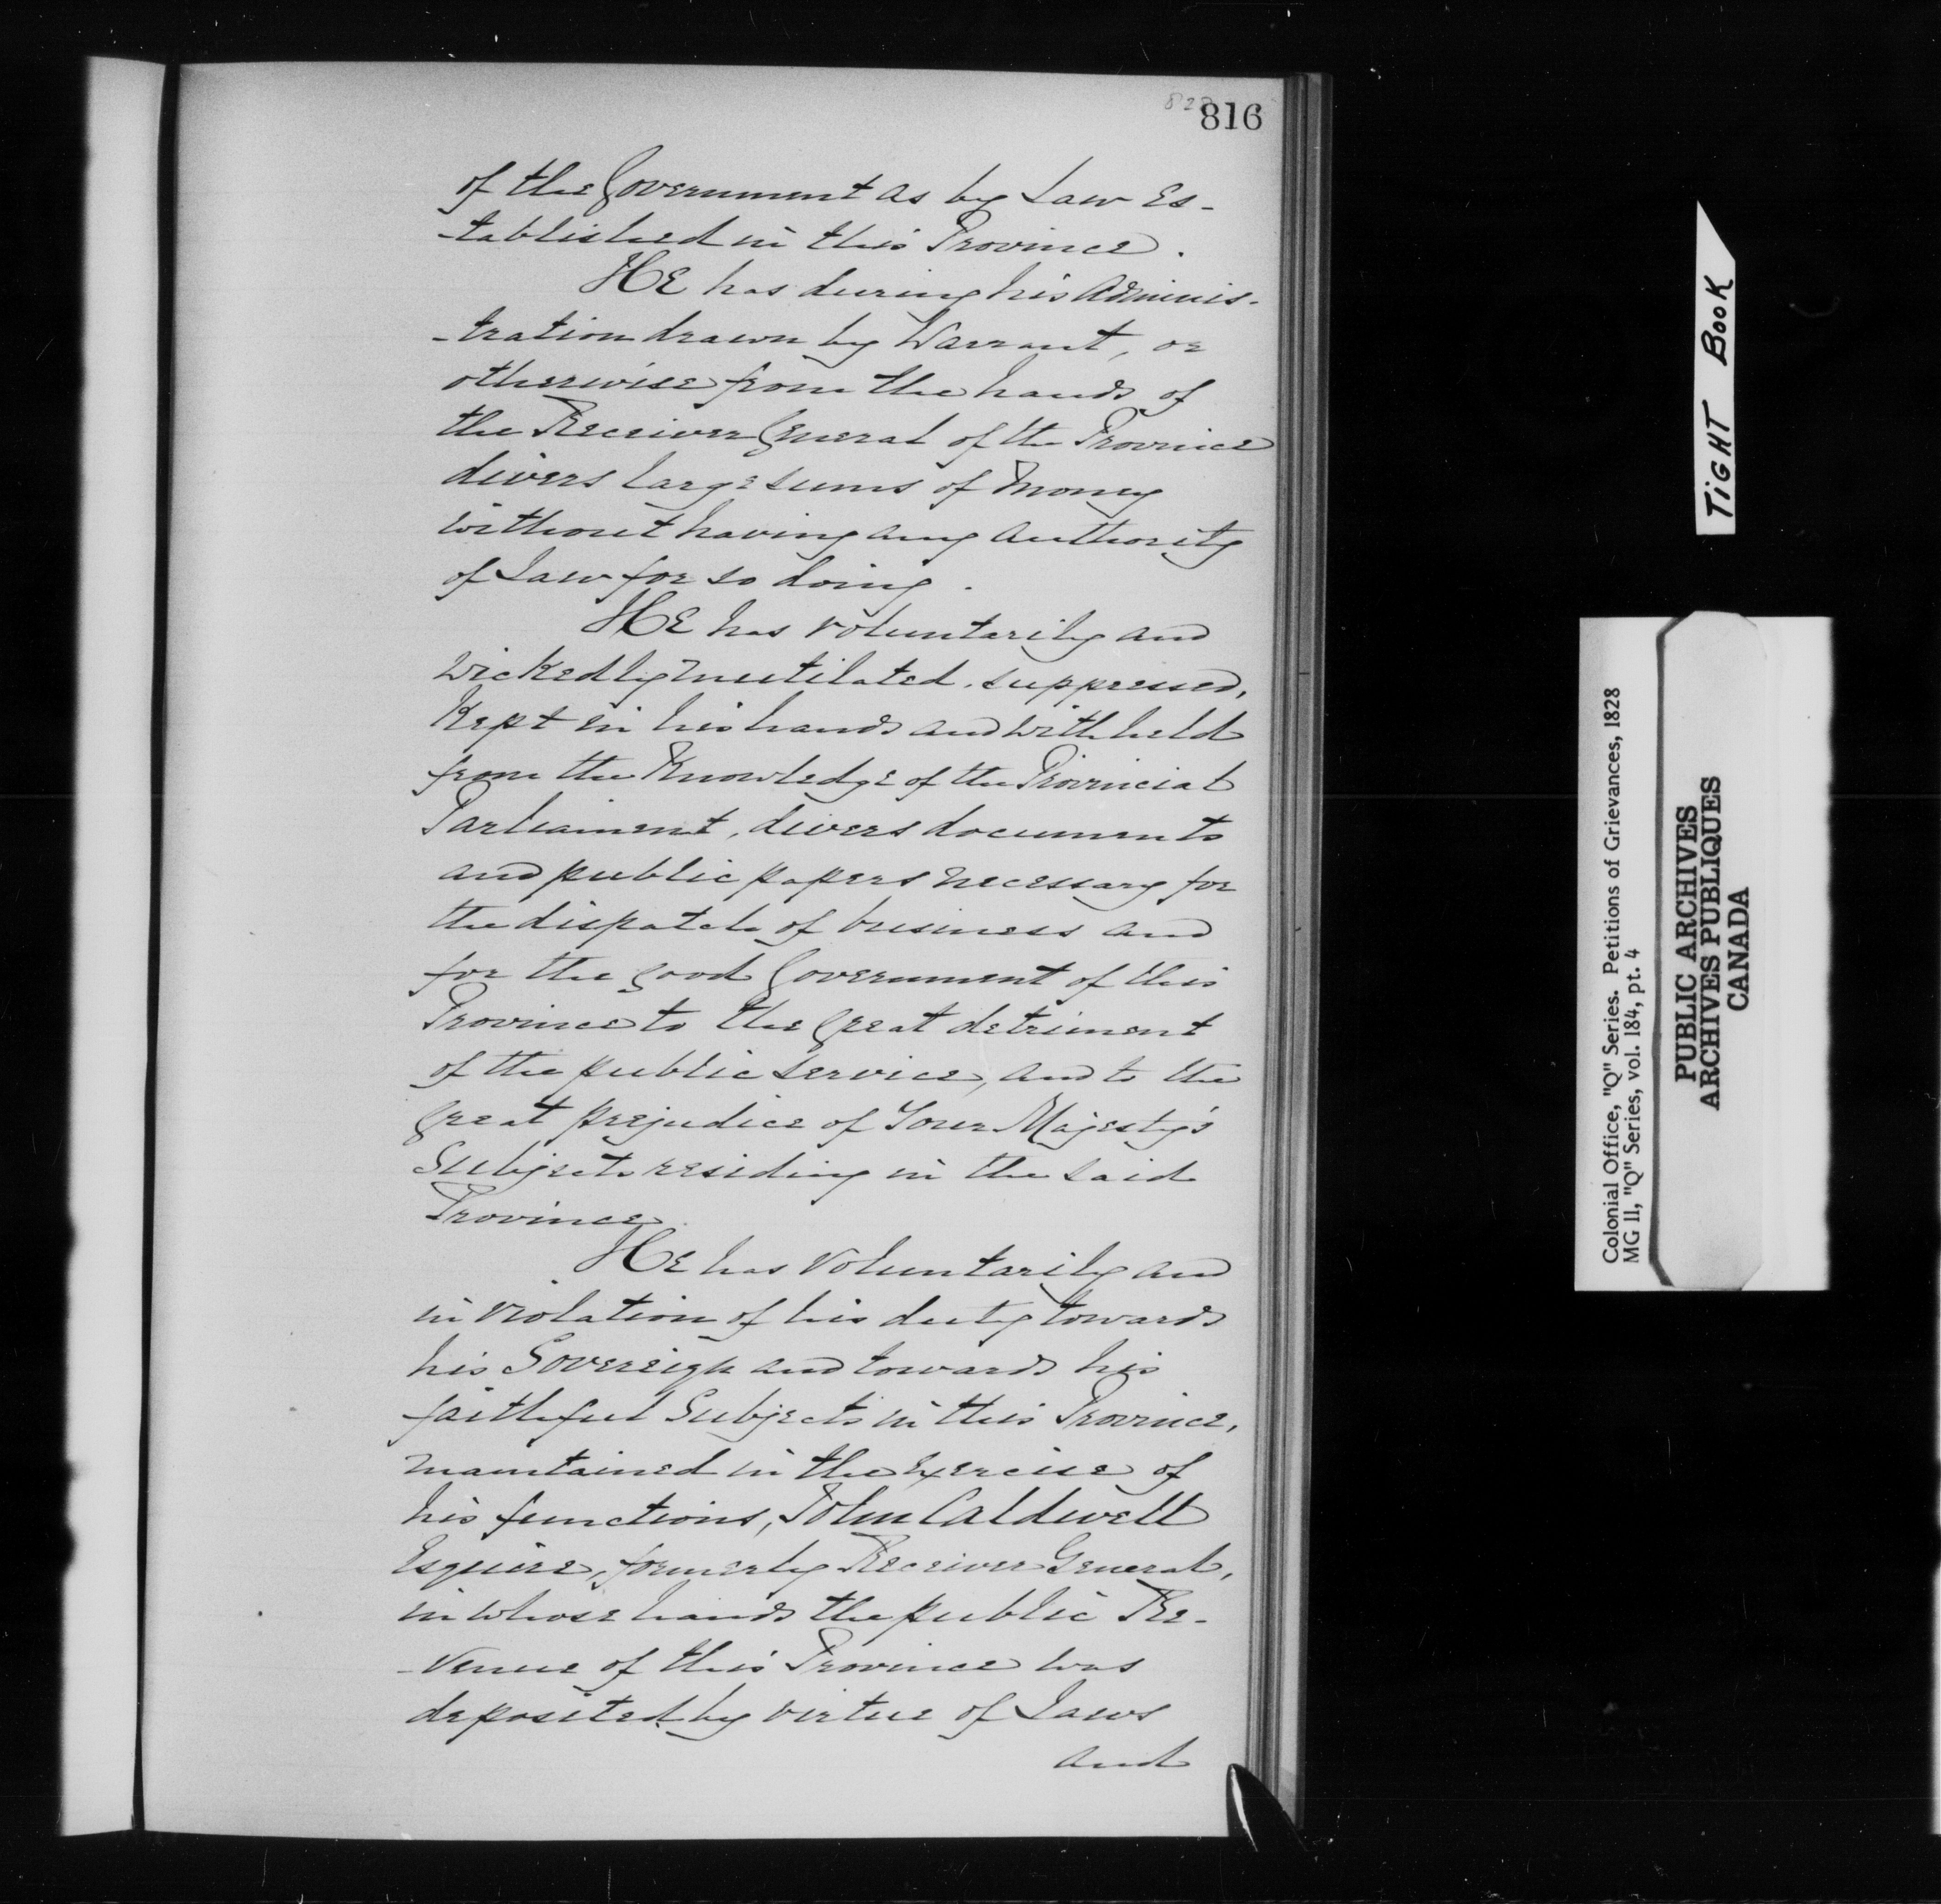 816
of the Government as by Law Es-
-tablished in this Province.
HE has during his Adminis-
-tration drawn by Warrant, or
otherwise from the hands of
the Receiver General of the Province
divers large sums of Money
without having any authority
of Law for so doing.
HE has voluntarily and
wickedly mutilated, suppressed,
Kept in his hands and withheld
from the Knowledge of the Provincial
Parliament, divers documents
and public papers necessary for
the dispatch of business and
for the good Government of this
Province to the great detriment
of the public Service, and to the
great prejudice of Your Majesty's
Subjects residing in the said
Province.
HE has voluntarily and
in violation of his duty towards
his Sovereign and towards his
faithful Subjects in this Province,
maintained in the exercise of
his functions, John Caldwell
Esquire, formerly Receiver General,
in whose hands the public Re-
-venue of this Province was
deposited by virtue of Laws
and
TIGHT BOOK
Colonial Office, "Q" Series. Petitions of Grievances, 1828
MG 11, "Q" Series, vol. 184, pt. 4
PUBLIC ARCHIVES
ARCHIVES PUBLIQUES
CANADA